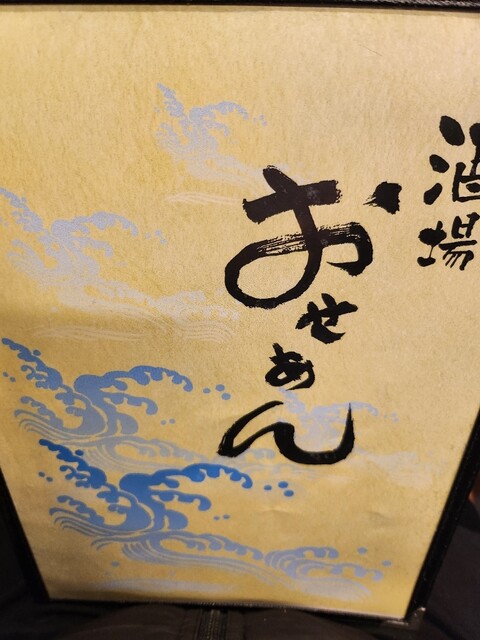 酒場
おせあん